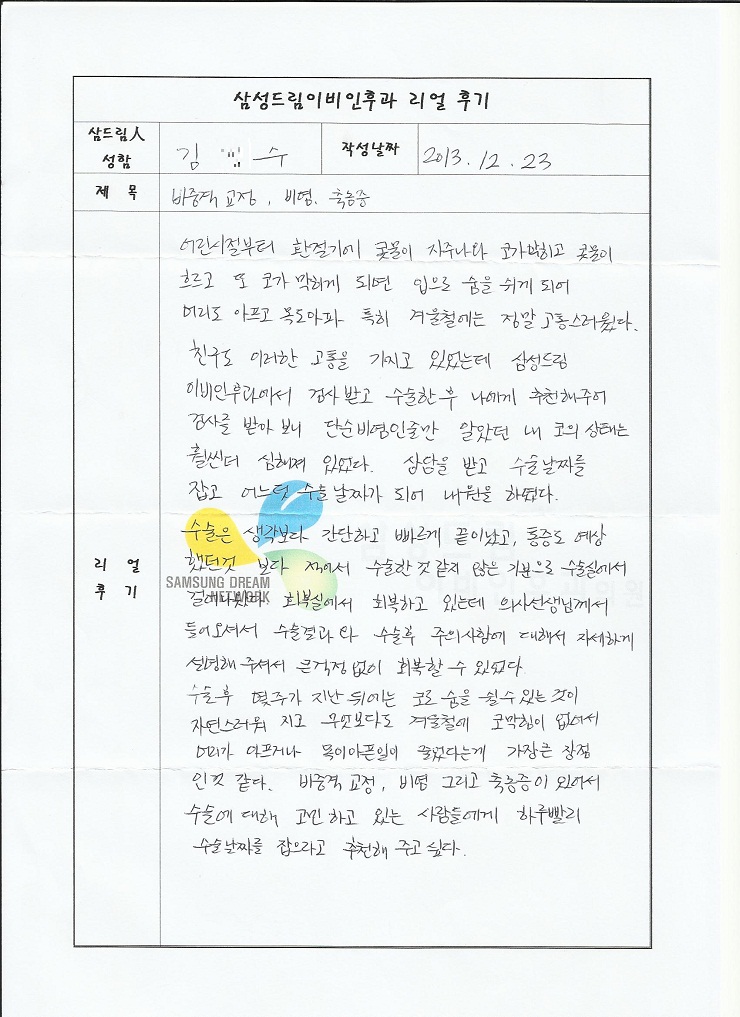 삼성드림이비인후과 리얼 후기
삼드림人 성함
김 수
작성날짜
2013. 12. 23
제 목
비중격 교정, 비염, 축농증
리 얼 후 기
어린시절부터 환절기에 콧물이 자주나와 코가막히고 콧물이
흐르고 또 코가 막히게 되면 입으로 숨을 쉬게 되어
머리도 아프고 목도아파 특히 겨울철에는 정말 고통스러웠다.
친구도 이러한 고통을 가지고 있었는데 삼성드림
이비인후과에서 검사받고 수술한후 나에게 추천해주어
검사를 받아 보니 단순비염인줄만 알았던 내 코의 상태는
훨씬더 심해져 있었다. 상담을 받고 수술날짜를
잡고 어느덧 수술날짜가 되어 내원을 하였다.
수술은 생각보다 간단하고 빠르게 끝이났고, 통증도 예상
했던것 보다 적어서 수술한 것 같지 않은 기분으로 수술실에서
걸어나왔다. 회복실에서 회복하고 있는데 의사선생님께서
들어오셔서 수술결과 와 수술후 주의사항에 대해서 자세하게
설명해 주셔서 큰걱정 없이 회복할 수 있었다.
수술후 몇주가 지난 뒤에는 코로 숨을 쉴수있는 것이
자연스러워 지고 무엇보다도 겨울철에 코막힘이 없어서
머리가 아프거나 목이아픈일이 줄었다는게 가장큰 장점
인것 같다. 비중격 교정, 비염 그리고 축농증이 있어서
수술에 대해 고민하고 있는 사람들에게 하루빨리
수술날짜를 잡으라고 추천해 주고싶다.
SAMSUNG DREAM
NETWORK